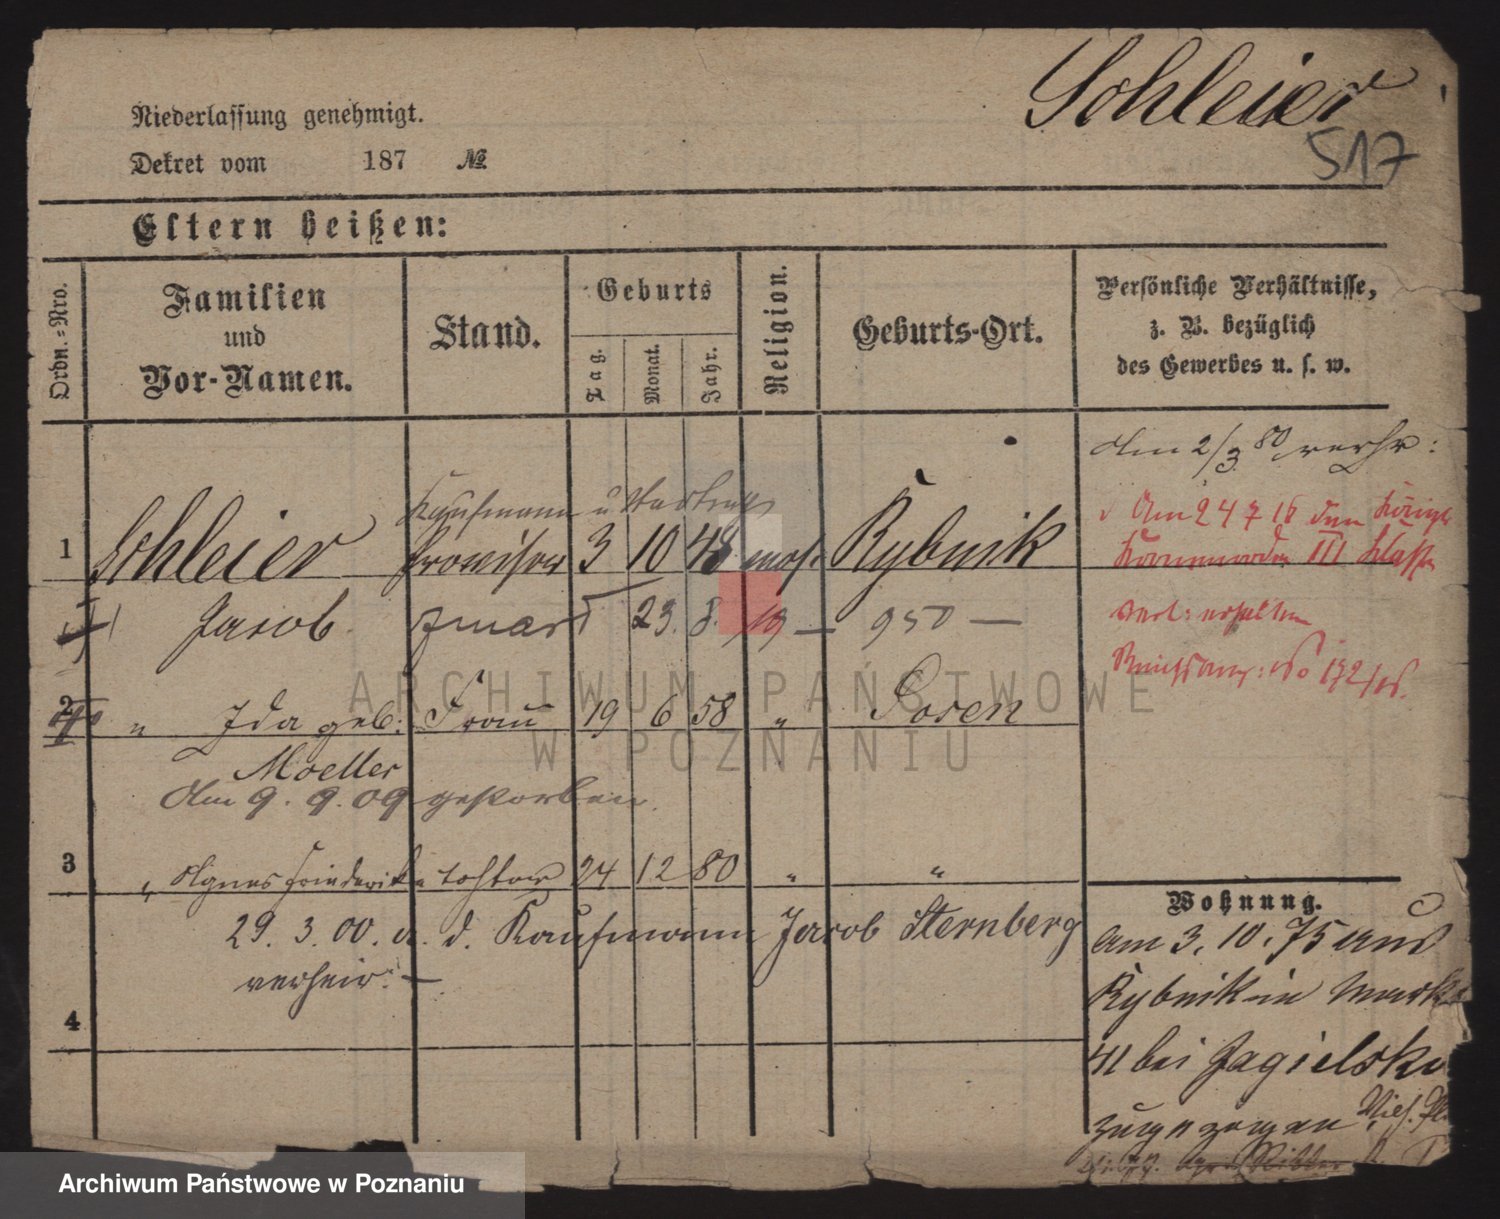 Schleier
517
Niederlassung genehmigt.
Dekret vom 187 №
Eltern heißen:
Ordn.-Nro.
Familien und Vor-Namen.
Stand.
Geburts
Tag.
Monat.
Jahr.
Religion.
Geburts-Ort.
Persönliche Verhältnisse,
z. B. bezüglich
des Gewerbes u. s. w.
Am 2/3 80 verh:
Kaufmann u
1 Schleier Provisor 3 10 48 mos. Rybnik
Jacob 23. 8. 19 — 950 —
2 " Ida geb: Frau 19 6 58 " Posen
Moeller
Am 9. 9. 09 gestorben.
3 " Agnes Friederike Tochter 24 12 80 " "
29. 3. 00. a. d. Kaufmann Jacob Sternberg
verheir. —
4
Am 24 7 16
III Klasse
erhalten
Wohnung.
Am 3. 10. 75 aus
Rybnik in Markt
41 bei Jagielski
zugezogen
ARCHIWUM PAŃSTWOWE
W POZNANIU
Archiwum Państwowe w Poznaniu